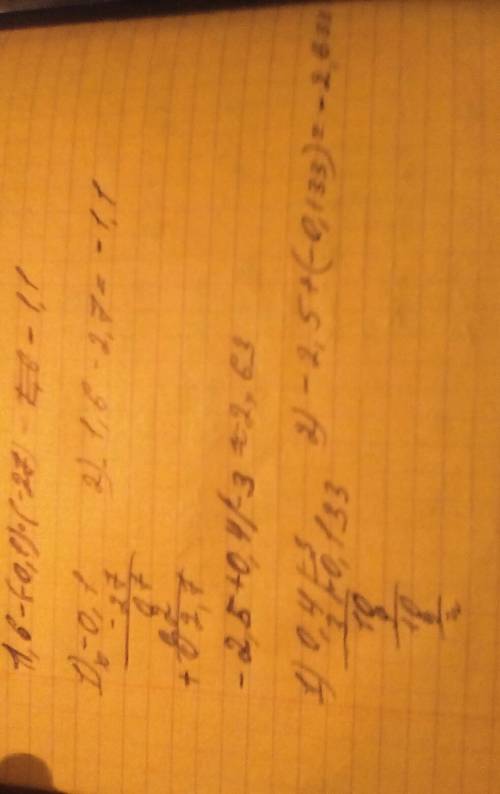 1,6-(-0,1)·(-27) = -1,1
1) -0,1 2) 1,6-2,7=-1,1
-27
0 7
0 2
+0 2,7
-2,5+0,4/-3≈-2,63
1) 0,4 -3 2) -2,5+(-0,133)=-2,633
3 -0,133
10
9
10
9